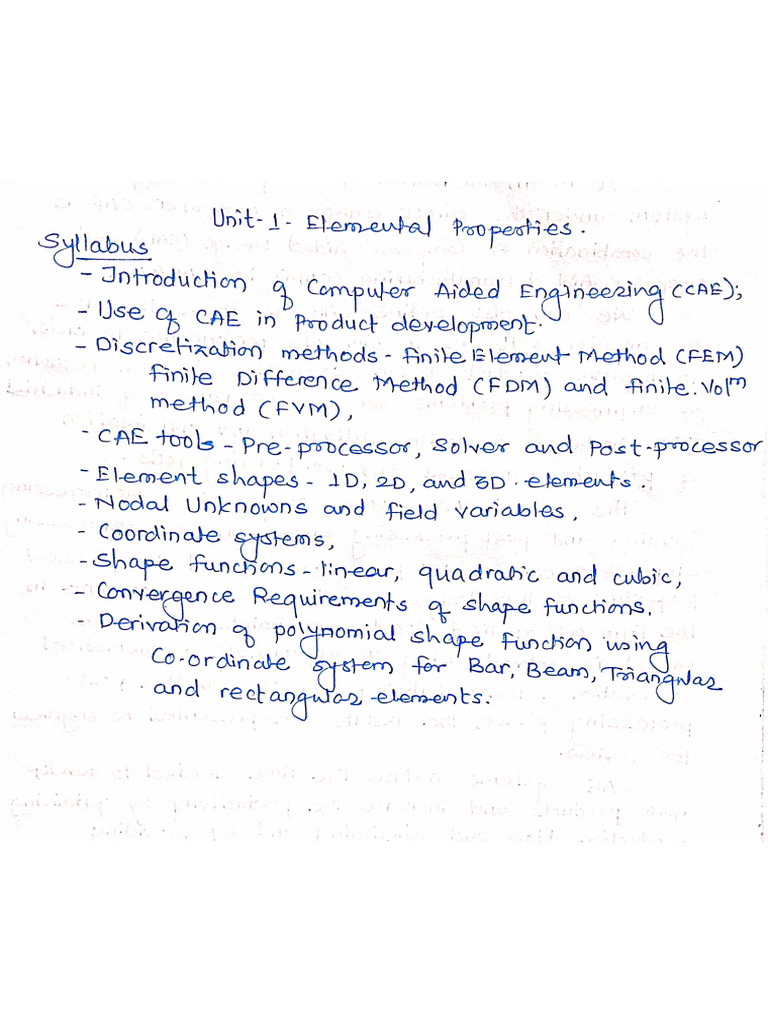 Unit-1- Elemental Properties.
Syllabus
- Introduction of Computer Aided Engineering (CAE);
- Use of CAE in Product development.
- Discretization methods - finite Element Method (FEM)
finite Difference Method (FDM) and finite Volm
method (FVM),
- CAE tools - Pre-processor, Solver and Post-processor
- Element shapes - 1D, 2D, and 3D elements.
- Nodal Unknowns and field variables,
- Coordinate systems,
- Shape functions - linear, quadratic and cubic,
- Convergence Requirements of shape functions.
- Derivation of polynomial shape function using
Co-ordinate system for Bar, Beam, Triangular
and rectangular elements.